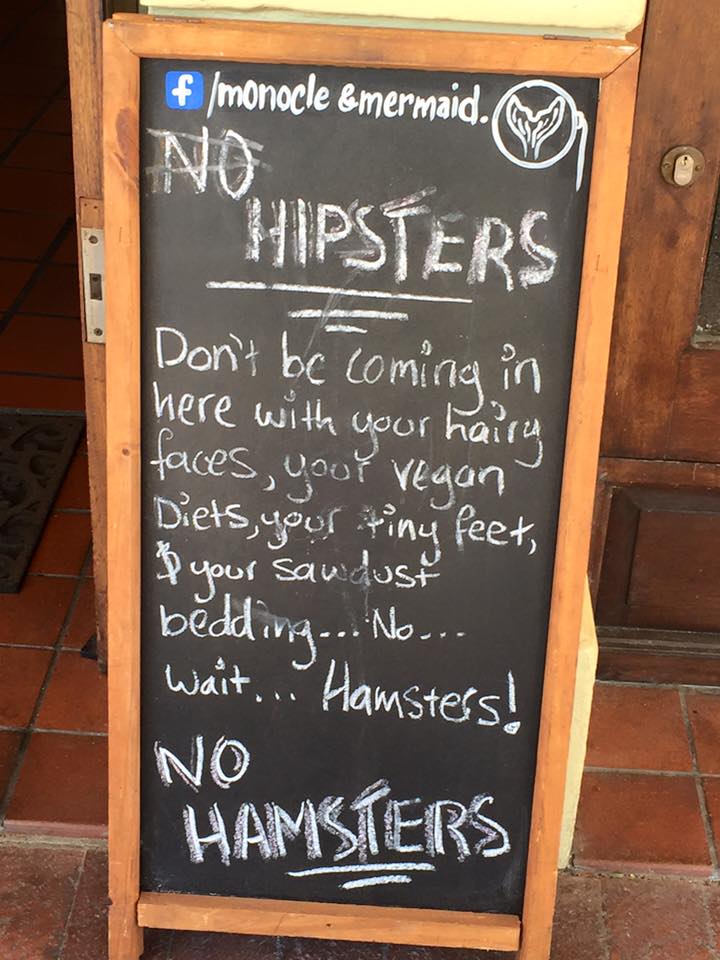 f /monocle & mermaid.
NO
HIPSTERS
Don't be coming in
here with your hairy
faces, your vegan
Diets, your tiny feet,
& your sawdust
bedding... No...
wait... Hamsters!
NO
HAMSTERS